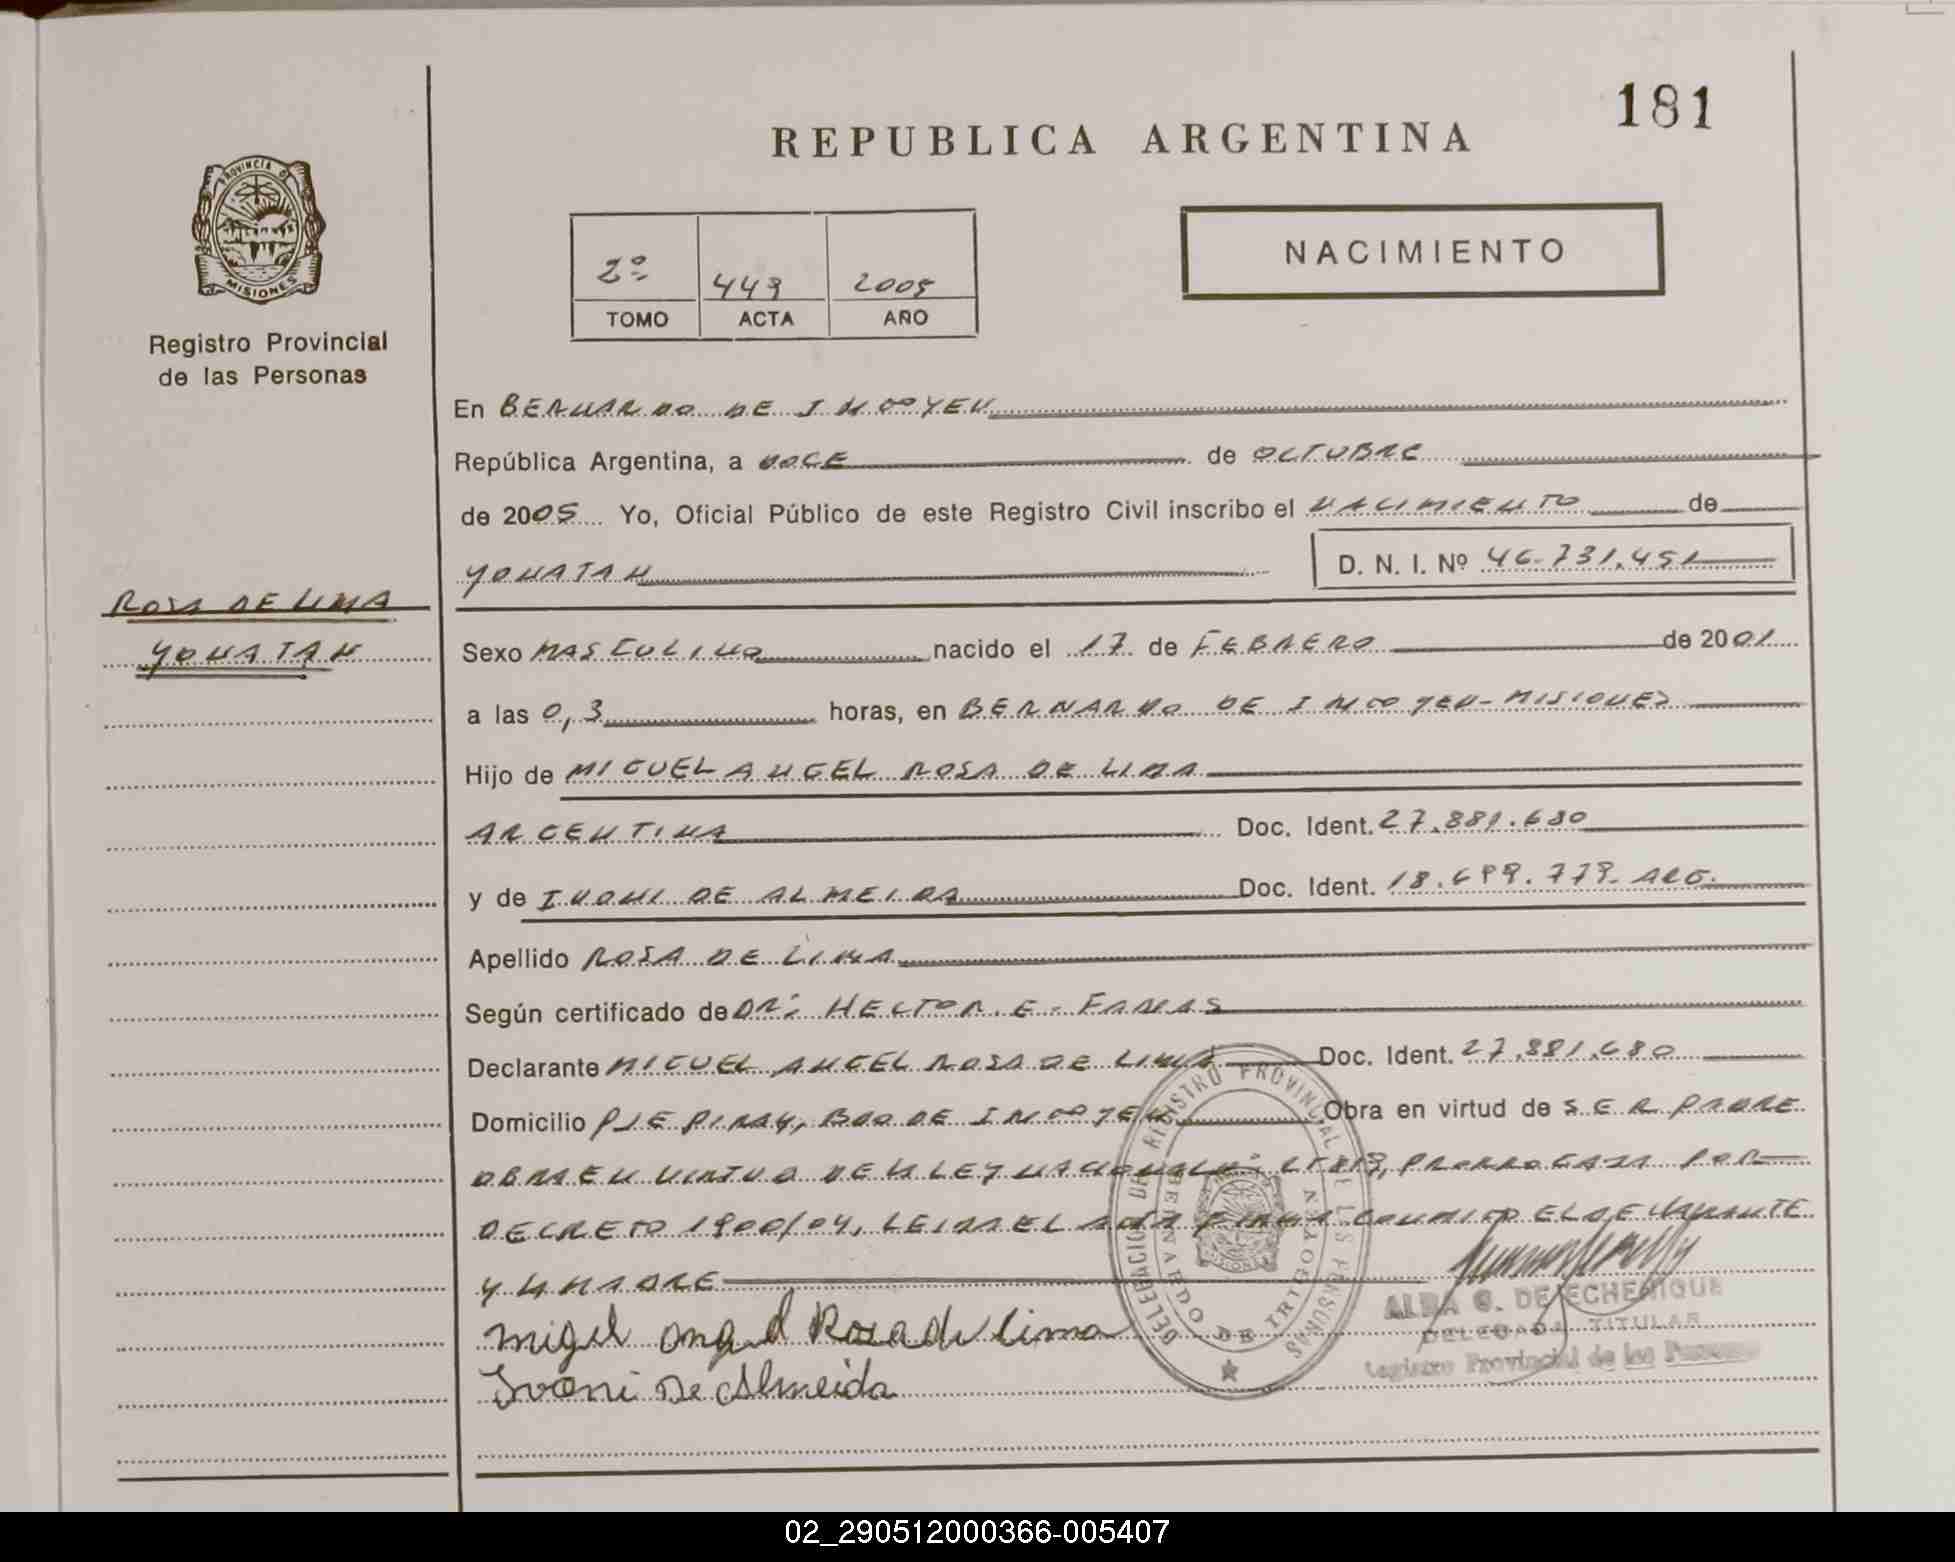 181
REPUBLICA ARGENTINA
PROVINCIA DE
MISIONES
Registro Provincial
de las Personas
NACIMIENTO
2º 449 2005
TOMO ACTA AÑO
En BERNARDO DE IRIGOYEN
República Argentina, a DOCE de OCTUBRE
de 2005 Yo, Oficial Público de este Registro Civil inscribo el NACIMIENTO de
YONATAN D. N. I. Nº 46.731.451
ROSA DE LIMA
YONATAN
Sexo MASCULINO nacido el 17 de FEBRERO de 2001
a las 0,3 horas, en BERNARDO DE IRIGOYEN-MISIONES
Hijo de MIGUEL ANGEL ROSA DE LIMA
ARGENTINA Doc. Ident. 27.881.680
y de IVONI DE ALMEIDA Doc. Ident. 18.699.779- ARG.
Apellido ROSA DE LIMA
Según certificado de DR: HECTOR.E-
Declarante MIGUEL ANGEL ROSA DE LIMA Doc. Ident. 27.881.680
Domicilio PJE PIRAY, BDO DE IRIGOYEN Obra en virtud de SER PADRE
OBRA EN VIRTUD DE LA LEY NACIONAL PRORROGADA POR
DECRETO 1900/04, LEIDA EL ACTA FIRMA CONMIGO EL DECLARANTE
Y LA MADRE
migel angel Rosa de lima
Ivoni De Almeida
DELEGACIO DEL REGISTRO PROVINCIAL DE LAS PERSONAS
BERNARDO DE IRIGOYEN
MISIONES
ALBA G. DE ECHENIQUE
DELEGADA TITULAR
Registro Provincial de las Personas
02_290512000366-005407